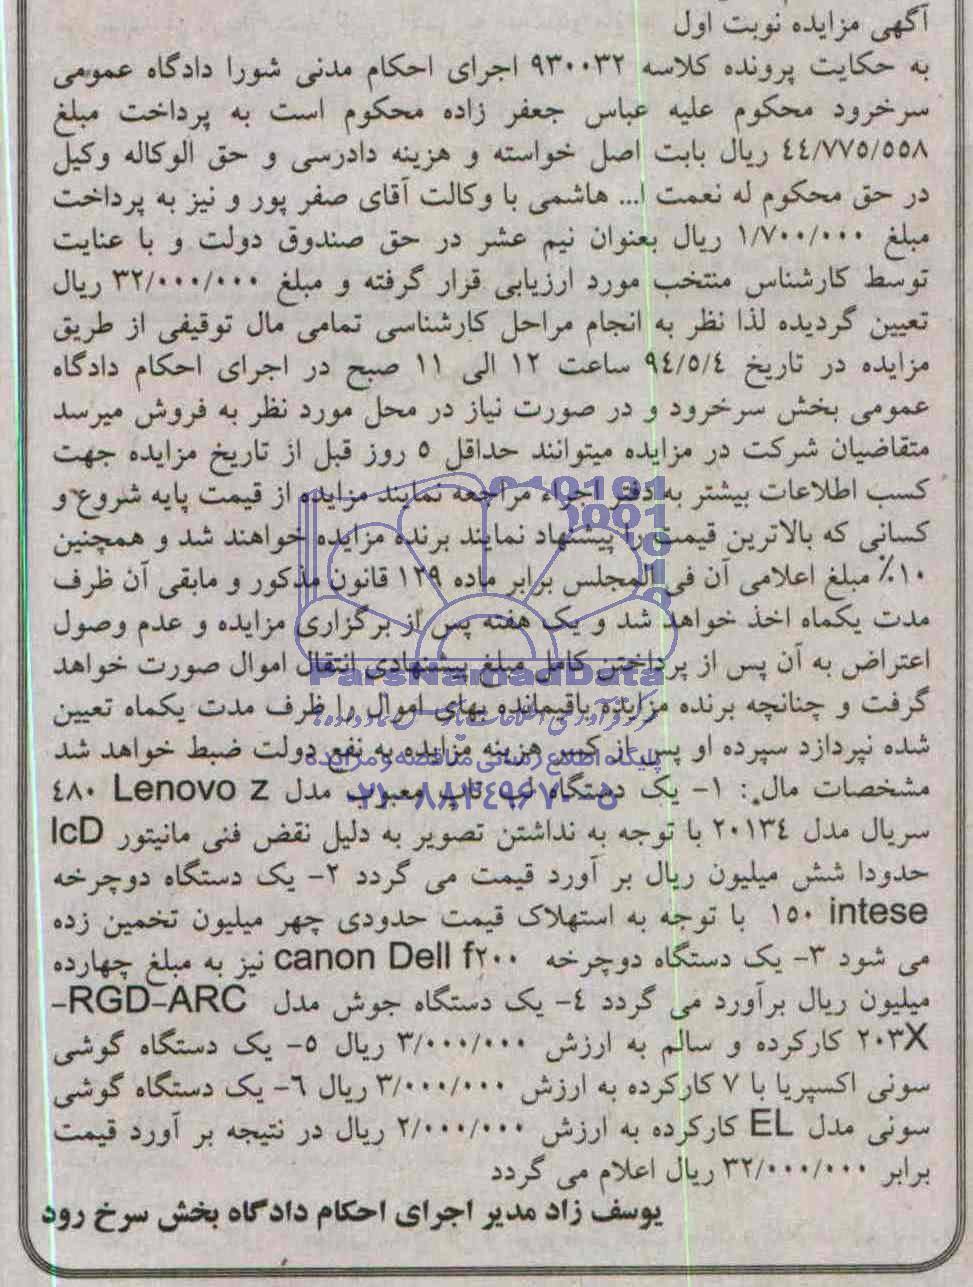 آگهی مزایده نوبت اول
به حکایت پرونده کلاسه ۹۳۰۰۳۲ اجرای احکام مدنی شورا دادگاه عمومی
سرخرود محکوم علیه عباس جعفر زاده محکوم است به پرداخت مبلغ
٤٤/۷۷٥/٥٥۸ ریال بابت اصل خواسته و هزینه دادرسی و حق الوکاله وکیل
در حق محکوم له نعمت ا... هاشمی با وکالت آقای صفر پور و نیز به پرداخت
مبلغ ۱/۷۰۰/۰۰۰ ریال بعنوان نیم عشر در حق صندوق دولت و با عنایت
توسط کارشناس منتخب مورد ارزیابی قرار گرفته و مبلغ ۳۲/۰۰۰/۰۰۰ ریال
تعیین گردیده لذا نظر به انجام مراحل کارشناسی تمامی مال توقیفی از طریق
مزایده در تاریخ ۹٤/٥/٤ ساعت ۱۲ الی ۱۱ صبح در اجرای احکام دادگاه
عمومی بخش سرخرود و در صورت نیاز در محل مورد نظر به فروش میرسد
متقاضیان شرکت در مزایده میتوانند حداقل ٥ روز قبل از تاریخ مزایده جهت
کسب اطلاعات بیشتر به دفتر اجراء مراجعه نمایند مزایده از قیمت پایه شروع و
کسانی که بالاترین قیمت را پیشنهاد نمایند برنده مزایده خواهند شد و همچنین
۱۰٪ مبلغ اعلامی آن فی المجلس برابر ماده ۱۲۹ قانون مذکور و مابقی آن ظرف
مدت یکماه اخذ خواهد شد و یک هفته پس از برگزاری مزایده و عدم وصول
اعتراض به آن پس از پرداختن کامل مبلغ پیشنهادی انتقال اموال صورت خواهد
گرفت و چنانچه برنده مزایده باقیمانده بهای اموال را ظرف مدت یکماه تعیین
شده نپردازد سپرده او پس از کسر هزینه مزایده به نفع دولت ضبط خواهد شد
مشخصات مال: ۱- یک دستگاه لپ تاپ معیوب مدل Lenovo z ٤۸۰
سریال مدل ۲۰۱۳٤ با توجه به نداشتن تصویر به دلیل نقض فنی مانیتور lcD
حدودا شش میلیون ریال بر آورد قیمت می گردد ۲- یک دستگاه دوچرخه
intese ۱٥۰ با توجه به استهلاک قیمت حدودی چهر میلیون تخمین زده
می شود ۳- یک دستگاه دوچرخه canon Dell f۲۰۰ نیز به مبلغ چهارده
میلیون ریال برآورد می گردد ٤- یک دستگاه جوش مدل RGD-ARC-
۲۰۳X کارکرده و سالم به ارزش ۳/۰۰۰/۰۰۰ ریال ٥- یک دستگاه گوشی
سونی اکسپریا با ۷ کارکرده به ارزش ۳/۰۰۰/۰۰۰ ریال ٦- یک دستگاه گوشی
سونی مدل EL کارکرده به ارزش ۲/۰۰۰/۰۰۰ ریال در نتیجه بر آورد قیمت
برابر ۳۲/۰۰۰/۰۰۰ ریال اعلام می گردد
یوسف زاد مدیر اجرای احکام دادگاه بخش سرخ رود
ParsNamadData
پایگاه اطلاع رسانی مناقصه و مزایده
۰۲۱-۸۸۳٤۹٦۷۰-٥